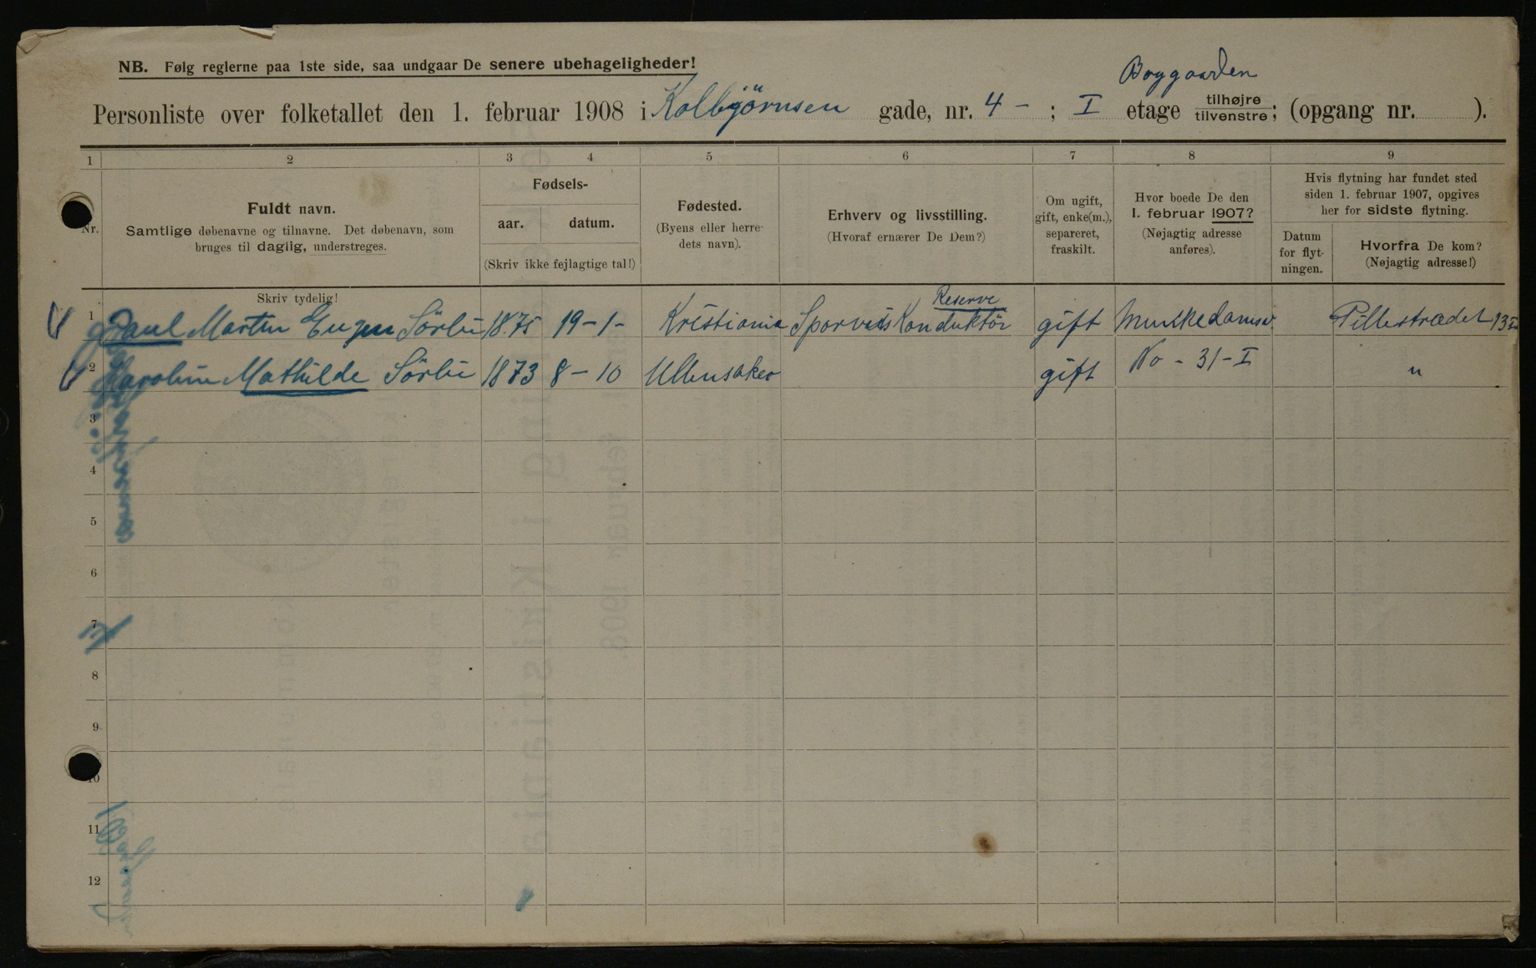 NB. Følg reglerne paa 1ste side, saa undgaar De senere ubehageligheder!
Boygaarden
Personliste over folketallet den 1. februar 1908 i Kolbjörnsen gade, nr. 4 - ; I etage tilhøjre tilvenstre; (opgang nr. ).
1 2 3 4 5 6 7 8 9
Nr.
Fuldt navn.
Samtlige døbenavne og tilnavne. Det døbenavn, som
bruges til daglig, understreges.
Skriv tydelig!
Fødsels-
aar. datum.
(Skriv ikke fejlagtige tal!)
Fødested.
(Byens eller herre-
dets navn).
Erhverv og livsstilling.
(Hvoraf ernærer De Dem?)
Om ugift,
gift, enke(m.),
separeret,
fraskilt.
Hvor boede De den
1. februar 1907?
(Nøjagtig adresse
anføres).
Hvis flytning har fundet sted
siden 1. februar 1907, opgives
her for sidste flytning.
Datum
for flyt-
ningen.
Hvorfra De kom?
(Nøjagtig adresse!)
Reserve
1 Paul Martin Eugen Sörlie 1875 19-1- Kristiania Sporveis Konduktör gift Munkedamsv. Pillestrædet 13 I
2 Karoline Mathilde Sörlie 1873 8-10 Ullensaker gift No - 31-I "
3
4
5
6
7
8
9
10
11
12